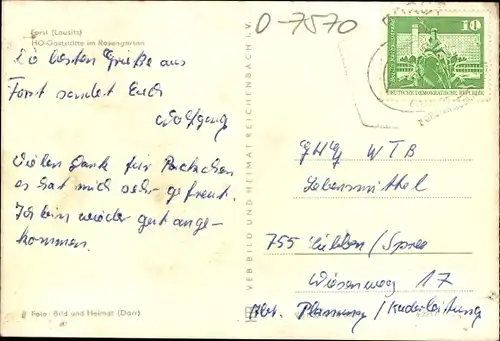 Forst (Lausitz)
HO-Gaststätte im Rosengarten
Die besten Grüße aus
Forst sendet Euch
Wolfgang
Vielen Dank für Päckchen
es hat mich sehr gefreut.
Ich bin wieder gut ange-
kommen.
Foto: Bild und Heimat (Darr)
VEB BILD UND HEIMAT REICHENBACH I. V.
O-7570
10
DEUTSCHE DEMOKRATISCHE REPUBLIK
GHG WTB
Lebensmittel
755 Lübben/Spree
Wiesenweg 17
Abt. Planung/Kaderleitung